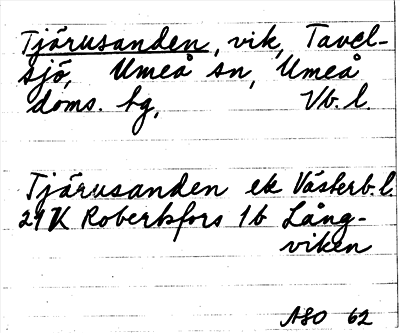 Tjärusanden, vik, Tavel-
sjö, Umeå sn, Umeå
doms. hg, Vb. l.
Tjärusanden ek Västerb. l.
21K Robertsfors 1b Lång-
viken
ASO 62